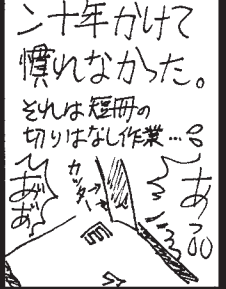 ン十年かけて
慣れなかった。
それは短冊の
切りはなし作業…
カッター→
あっ
あ゛あ゛